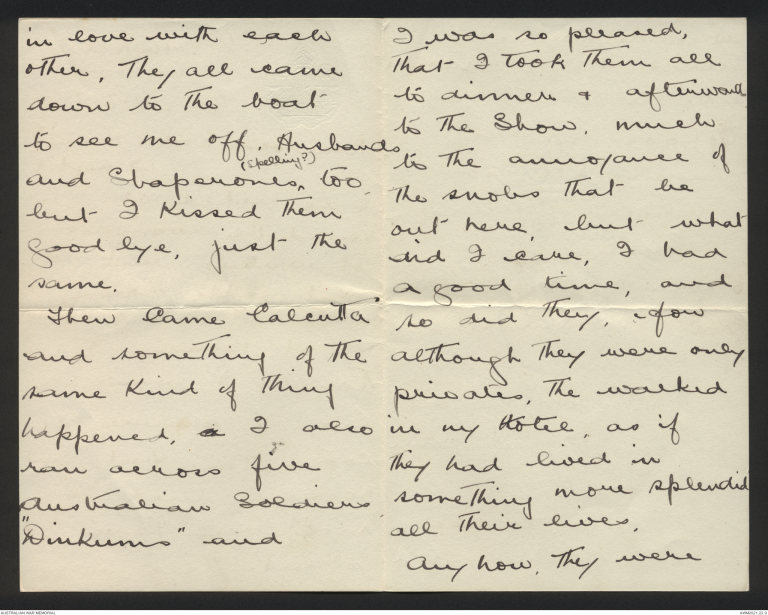 in love with each
other. They all came
down to the boat
to see me off. Husbands
(Spelling?)
and Shaperones, too,
but I kissed them
good bye, just the
same.
Then Came Calcutta
and something of the
same Kind of Thing
happened. I also
ran across five
Australian Soldiers
"Dinkums" and
I was so pleased,
that I took them all
to dinner & afterward
to the Show. much
to the annoyance of
the snobs that be
out here, but what
did I care, I had
a good time, and
so did they, for
although they were only
privates, The walked
in my Hotel, as if
they had lived in
something more splendid
all their lives.
Any how, they were
AUSTRALIAN WAR MEMORIAL